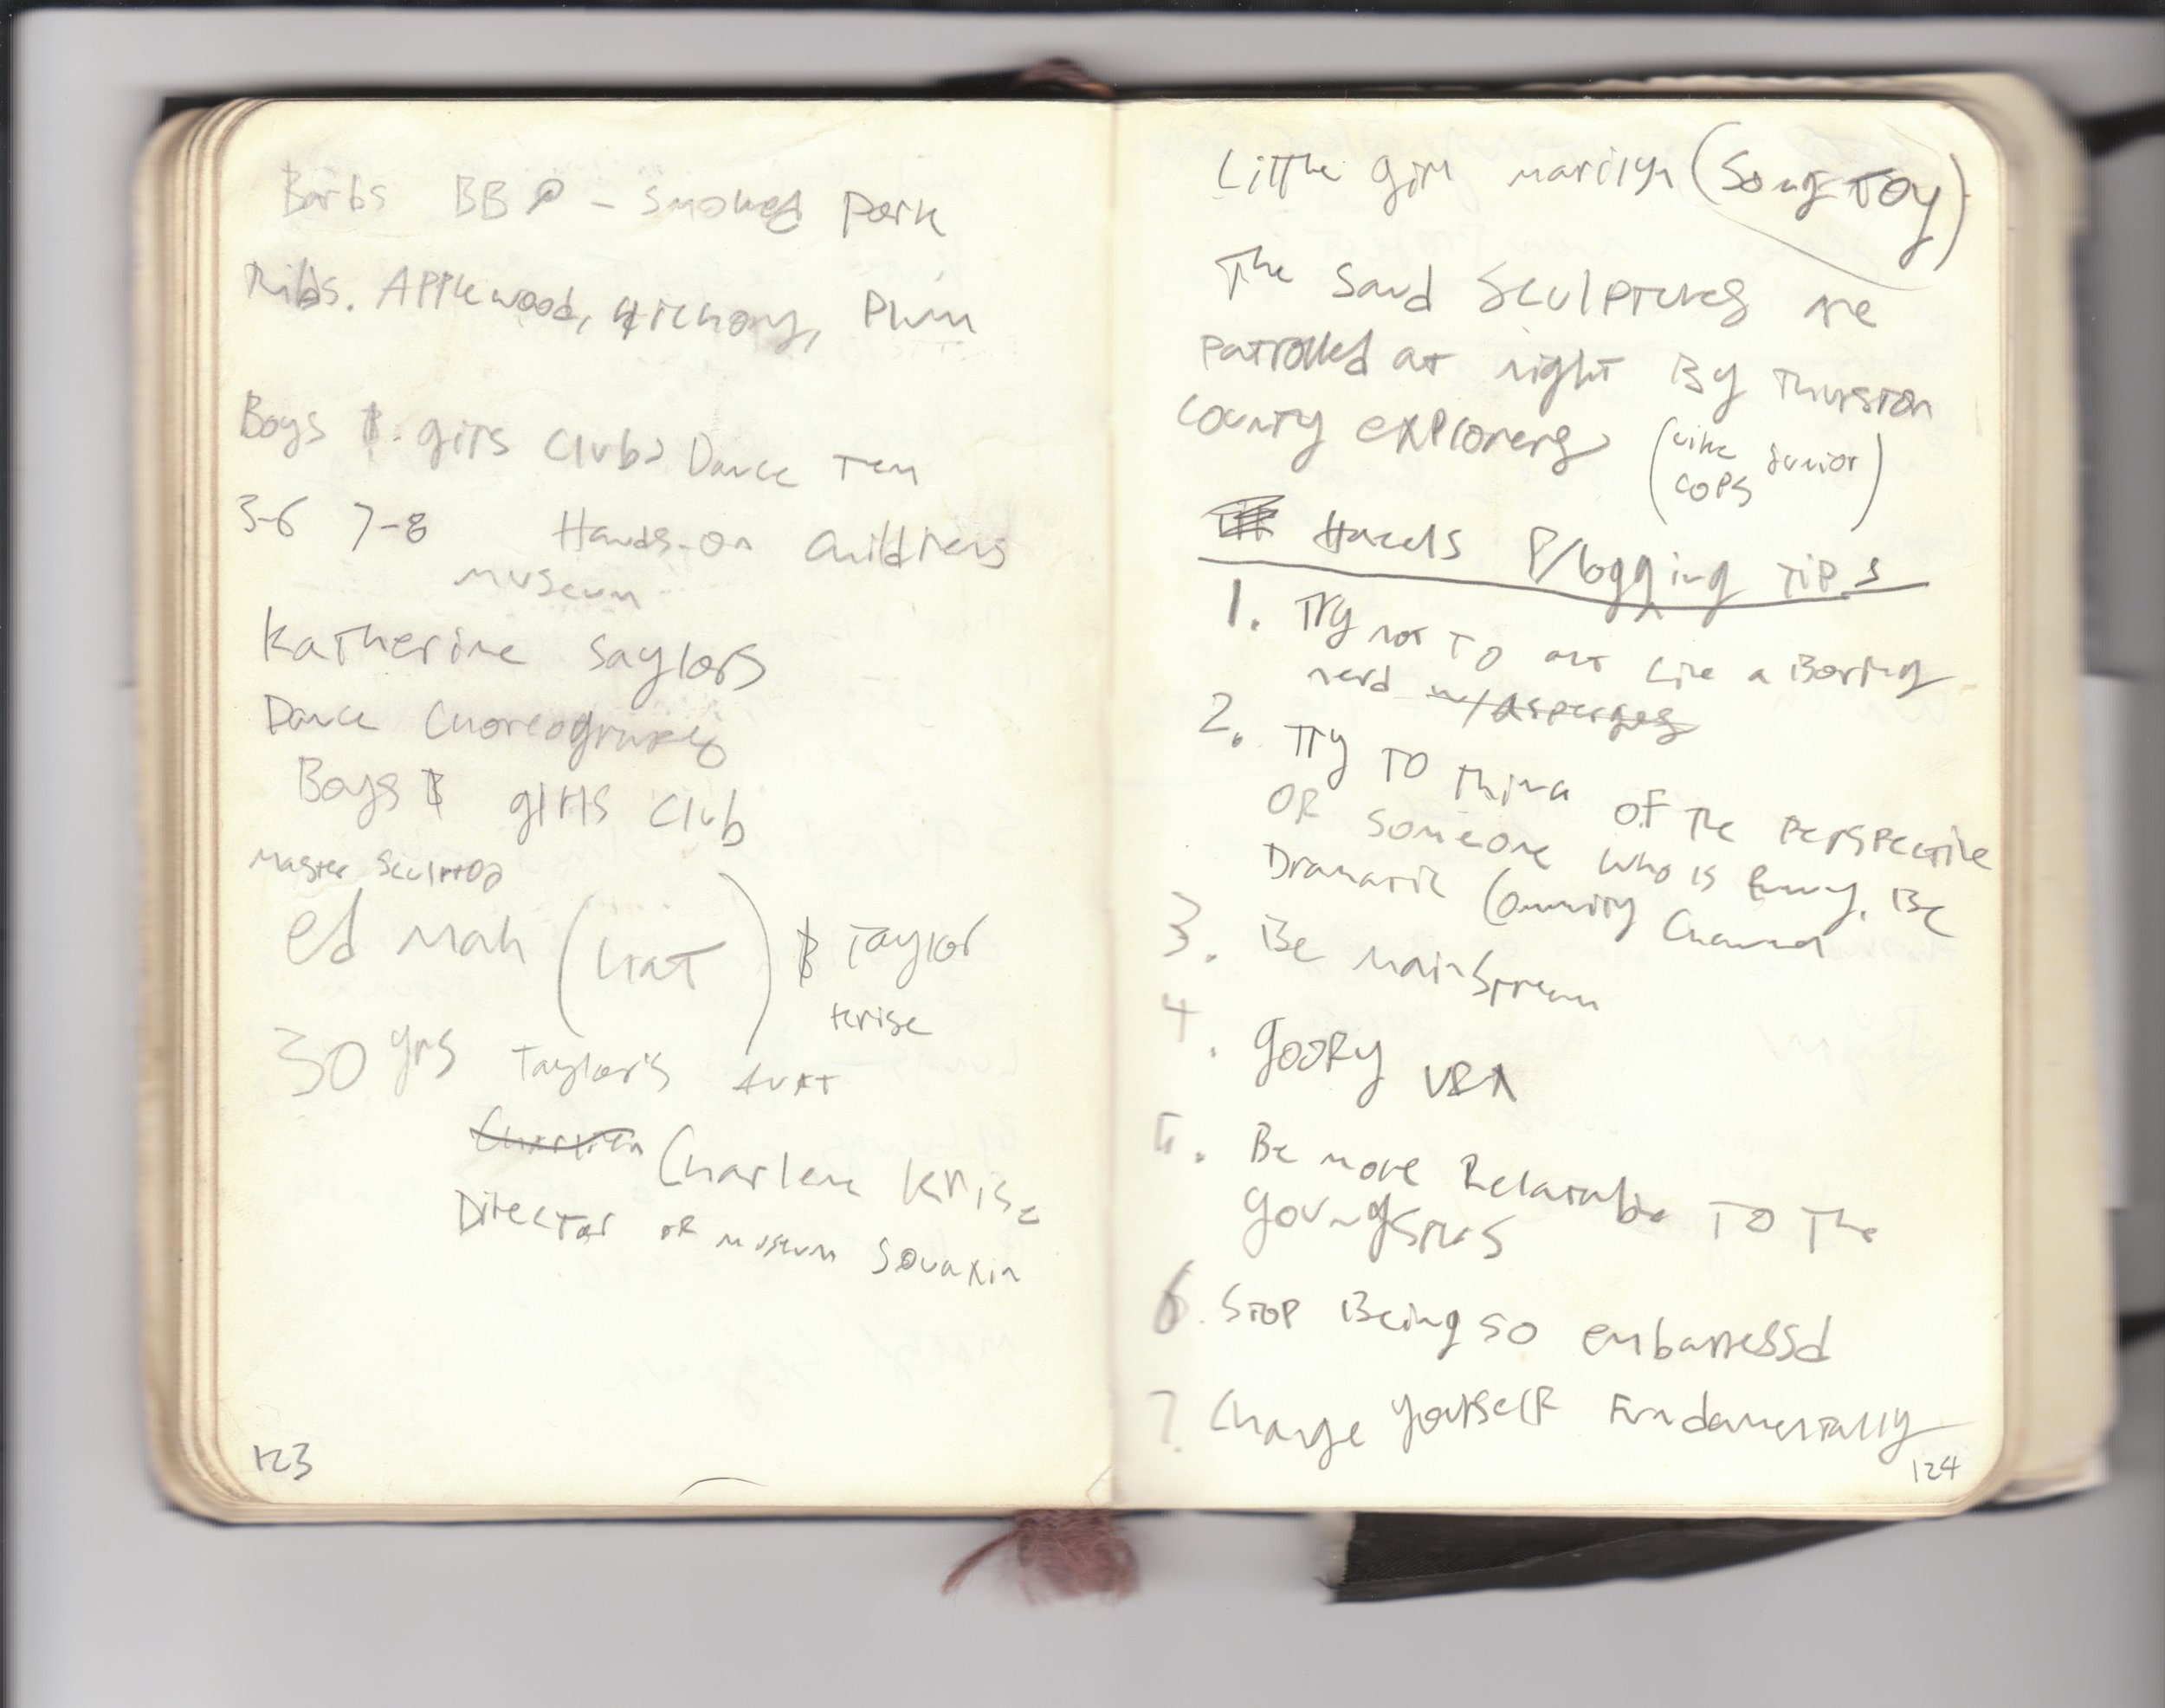 Barbs BBQ - Smoked Pork
Ribs. Applewood, Hickory, Plum
Boys & girls Club Dance Team
3-6 7-8 Hands-on Childrens
museum
Katherine Saylors
Dance Choreographer
Boys & girls Club
Master Sculptor
ed Mah (HAT) & Taylor
Krise
30 yrs Taylor's Aunt
Charlene Krise
Director of museum Squaxin
123
Little girl marilyn (Song-Joy)
The Sand Sculptures are
patrolled at night By Thurston
County explorers (like Junior
COPS)
Hacels P/logging Tips
1. Try not To act Like a Boring
nerd w/Aspergers
2. Try To Think of The perspective
OF someone who is funny. Be
Dramatic Community Channel
3. Be mainstream
4. goofy
5. Be more Relatable To The
youngsters
6. Stop Being so embarressd
7. Change yourself Fundamentally
124